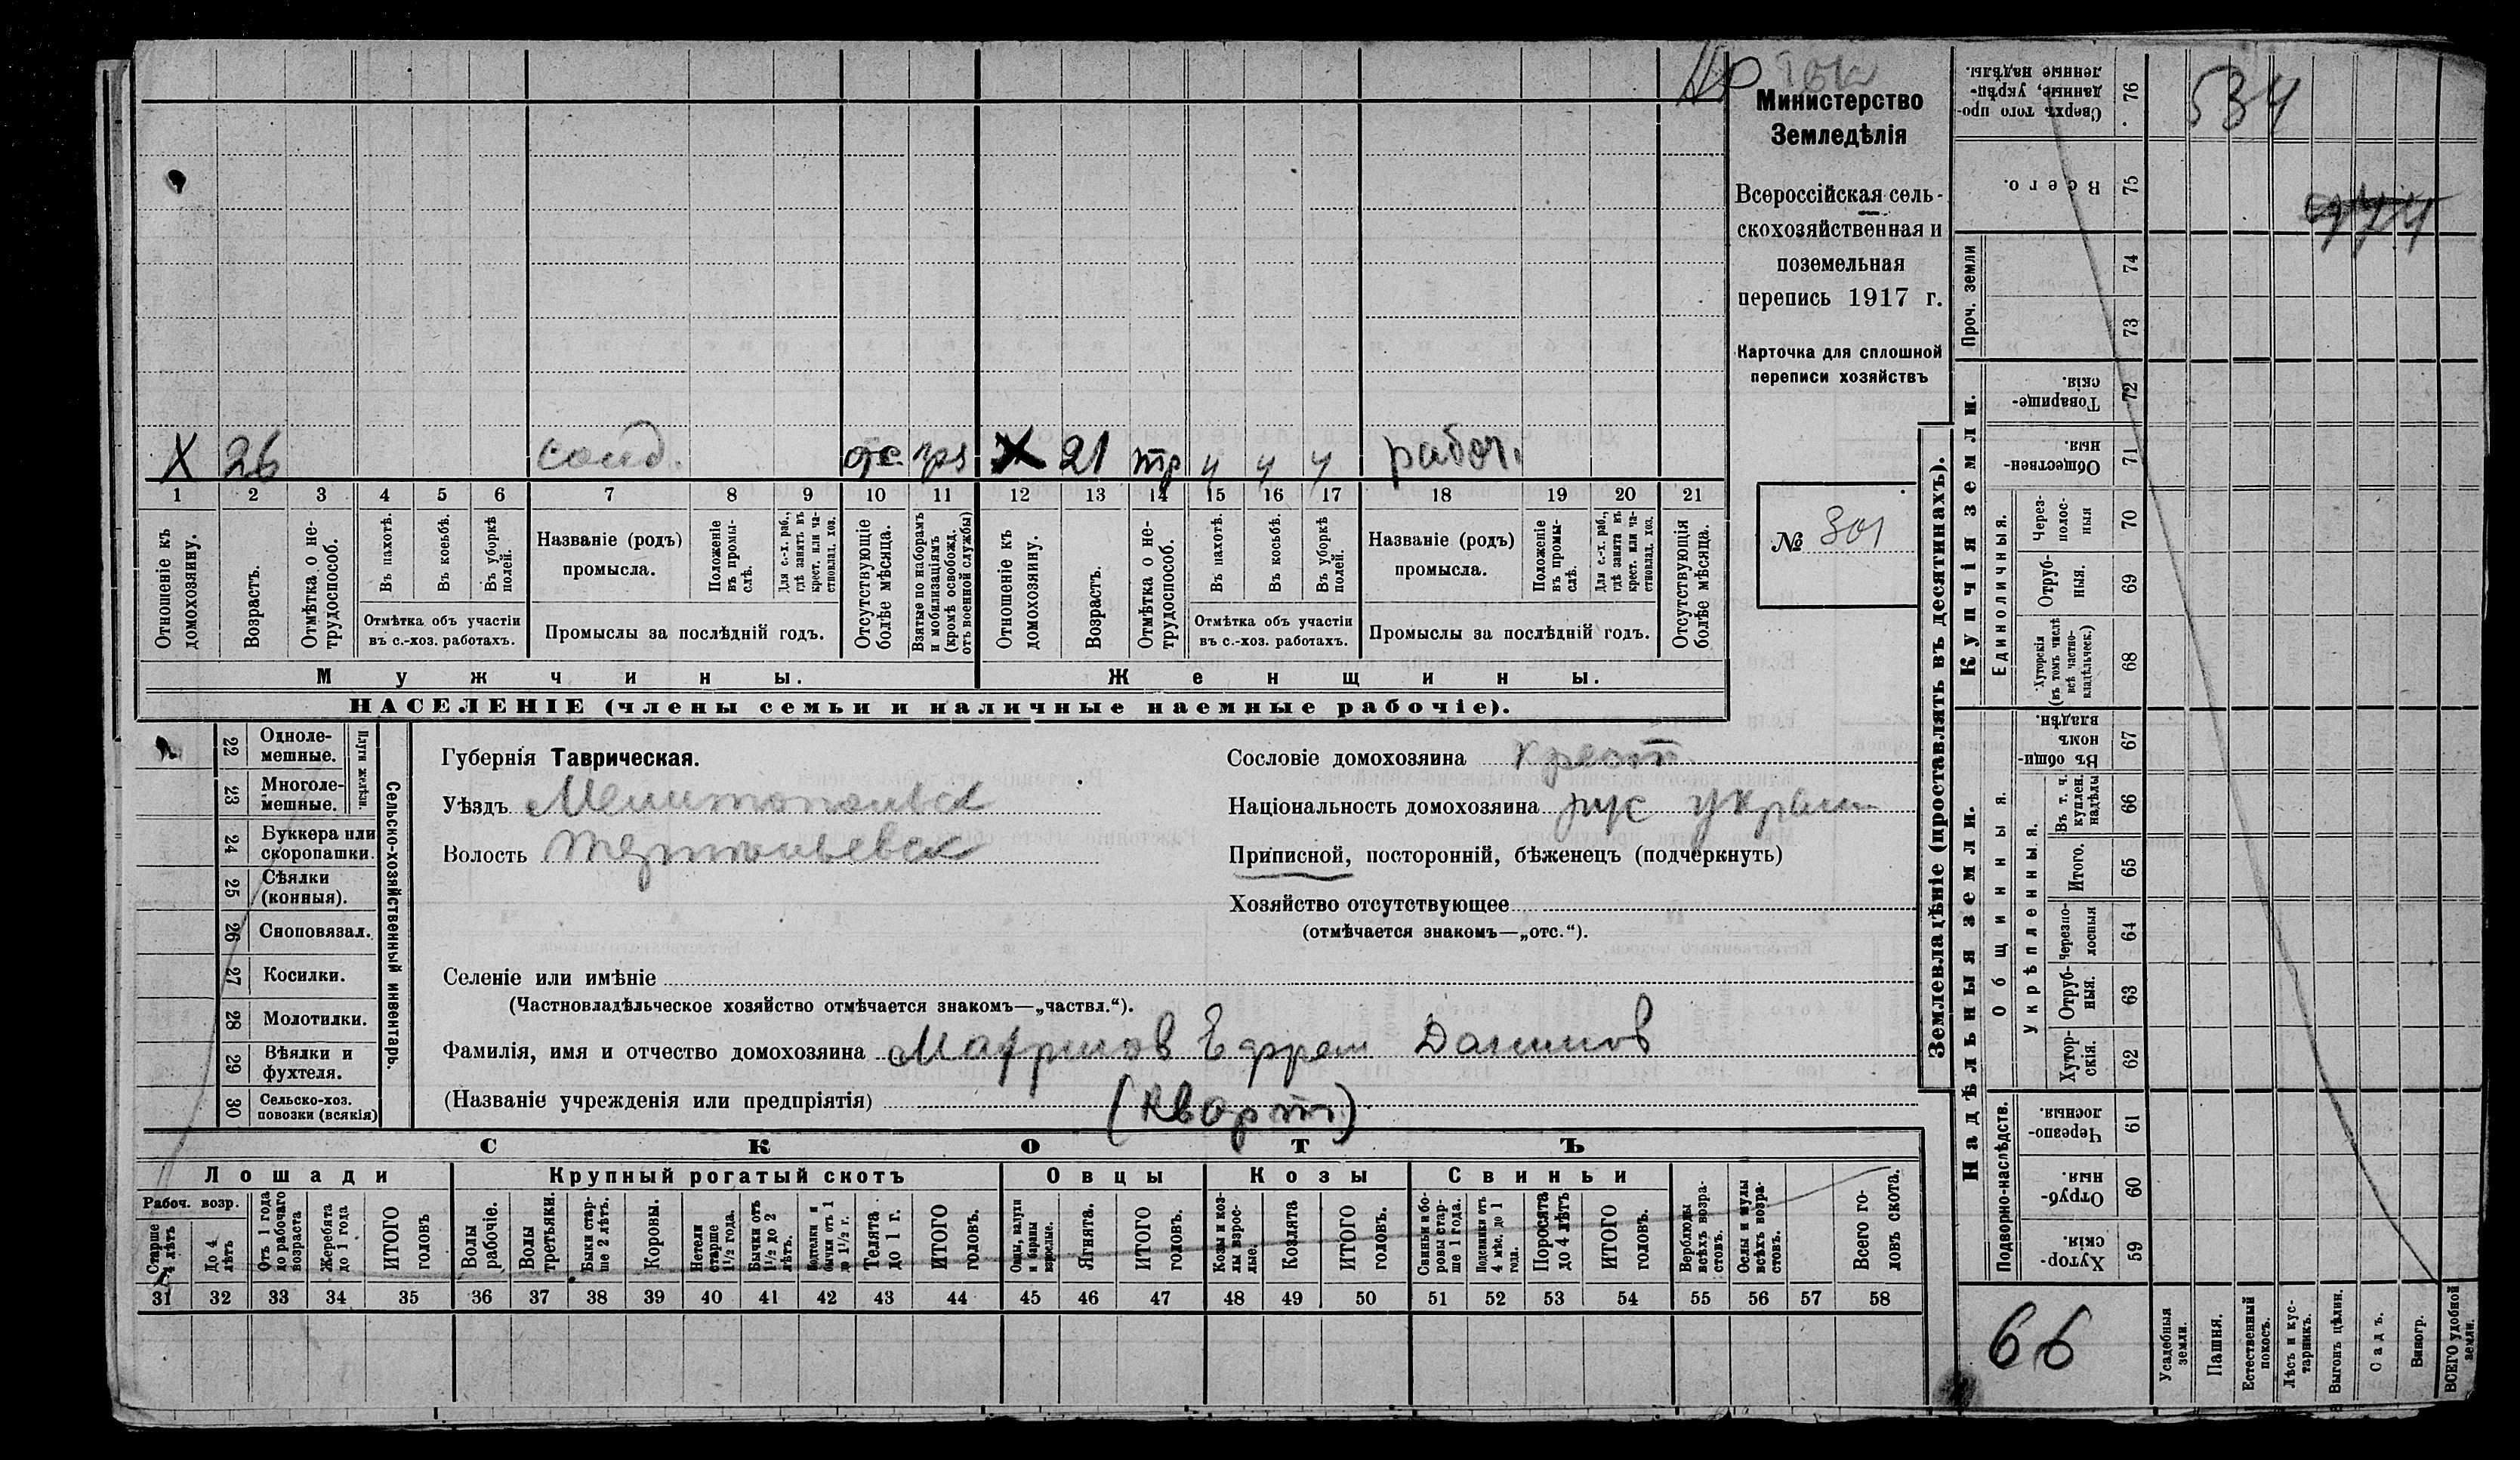 Министерство
Земледѣлія
Всероссійская сель-
скохозяйственная и
поземельная
перепись 1917 г.
Карточка для сплошной
переписи хозяйствъ
№ 301
X 26 солд. отс X 21 тр ч ч ч работ.
1 2 3 4 5 6 7 8 9 10 11 12 13 14 15 16 17 18 19 20 21
Отношеніе къ домохозяину.
Возрастъ.
Отмѣтка о не-трудоспособ.
Въ пахотѣ.
Въ косьбѣ.
Въ уборкѣ полей.
Отмѣтка объ участіи
въ с.-хоз. работахъ.
Названіе (родъ)
промысла.
Положеніе въ промы-слѣ.
Для с.-х. раб., гдѣ занятъ въ крест. или ча-стновлад. хоз.
Промыслы за послѣдній годъ.
Отсутствующіе болѣе мѣсяца.
Взятые по наборамъ и мобилизаціямъ (кромѣ освобожд. отъ военной службы)
Отношеніе къ домохозяину.
Возрастъ.
Отмѣтка о не-трудоспособ.
Въ пахотѣ.
Въ косьбѣ.
Въ уборкѣ полей.
Отмѣтка объ участіи
въ с.-хоз. работахъ.
Названіе (родъ)
промысла.
Положеніе въ промы-слѣ.
Для с.-х. раб., гдѣ занята въ крест. или ча-стновлад. хоз.
Промыслы за послѣдній годъ.
Отсутствующія болѣе мѣсяца.
Мужчины. Женщины.
НАСЕЛЕНІЕ (члены семьи и наличные наемные рабочіе).
22 Одноле-мешные.
23 Многоле-мешные.
Плуги желѣзн.
24 Буккера или скоропашки.
25 Сѣялки (конныя).
26 Сноповязал.
27 Косилки.
28 Молотилки.
29 Вѣялки и фухтеля.
30 Сельско-хоз. повозки (всякія)
Сельско-хозяйственный инвентарь.
Губернія Таврическая.
Уѣздъ Мелитопольск
Волость
Селеніе или имѣніе
(Частновладѣльческое хозяйство отмѣчается знакомъ—„частвл.“).
Фамилія, имя и отчество домохозяина Ефрем Данилов
(Названіе учрежденія или предпріятія) (Кварт.)
Сословіе домохозяина крест.
Національность домохозяина рус украин
Приписной, посторонній, бѣженец (подчеркнуть)
Хозяйство отсутствующее
(отмѣчается знакомъ—„отс.“).
СКОТЪ
Лошади Крупный рогатый скотъ Овцы Козы Свиньи
Рабоч. возр.
Старше 4 лѣтъ
До 4 лѣтъ
Отъ 1 года до рабочаго возраста
Жеребята до 1 года
ИТОГО головъ
Волы рабочіе.
Волы третьяки.
Быки стар-ше 2 лѣтъ.
Коровы.
Нетели старше 1½ года.
Бычки отъ 1½ до 2 лѣтъ.
бычки отъ 1 до 1½ г.
Телята до 1 г.
ИТОГО головъ.
Овцы, валухи и бараны взрослые.
Ягнята.
ИТОГО головъ.
Козы и коз-лы взрос-лые.
Козлята
ИТОГО головъ.
Свиньи и бо-ровы стар-ше 1 года.
Подсвинки отъ 4 мѣс. до 1 года.
Поросята до 4 лѣтъ
ИТОГО головъ.
Верблюды всѣхъ возра-стовъ.
Ослы и мулы всѣхъ возра-стовъ.
Всего го-ловъ скота.
31 32 33 34 35 36 37 38 39 40 41 42 43 44 45 46 47 48 49 50 51 52 53 54 55 56 57 58
Землевладѣніе (проставлять въ десятинахъ).
Надѣльныя земли.
Купчія земли.
Проч. земли
Подворно-наслѣдств.
Общинныя.
Укрѣпленныя.
Единоличныя.
Сверхъ того про-данные, укрѣп-ленные надѣлы. 76
Всего. 75
74
73
Товарище-скія. 72
Обществен-ныя 71
Через-полос-ныя 70
Отруб-ныя. 69
Хуторскія (въ томъ числѣ всѣ частно-владѣльческ.) 68
Въ общин-номъ владѣн. 67
Въ т. ч. куплен. надѣлы 66
Итого. 65
Черезпо-лосныя 64
Отруб-ныя. 63
Хутор-скія. 62
Черезпо-лосныя. 61
Отруб-ныя. 60
Хутор-скія. 59
534
66
Усадебныя земли.
Пашня.
Естественный покосъ.
Лѣсъ и кус-тарникъ.
Выгонъ цѣлин.
Садъ.
Виногр.
ВСЕГО удобной земли.